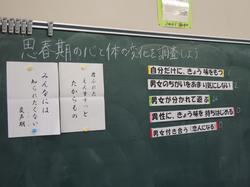 思春期の心と体の変化を調査しよう
君ふれた
たからもの
みんなには
知られたくない
変声期
自分だけに、きょう味をもつ
男女のちがいをあまり気にしない
男女が分かれて遊ぶ
異性に、きょう味を持ちはじめる
男女付き合う(恋人になる)